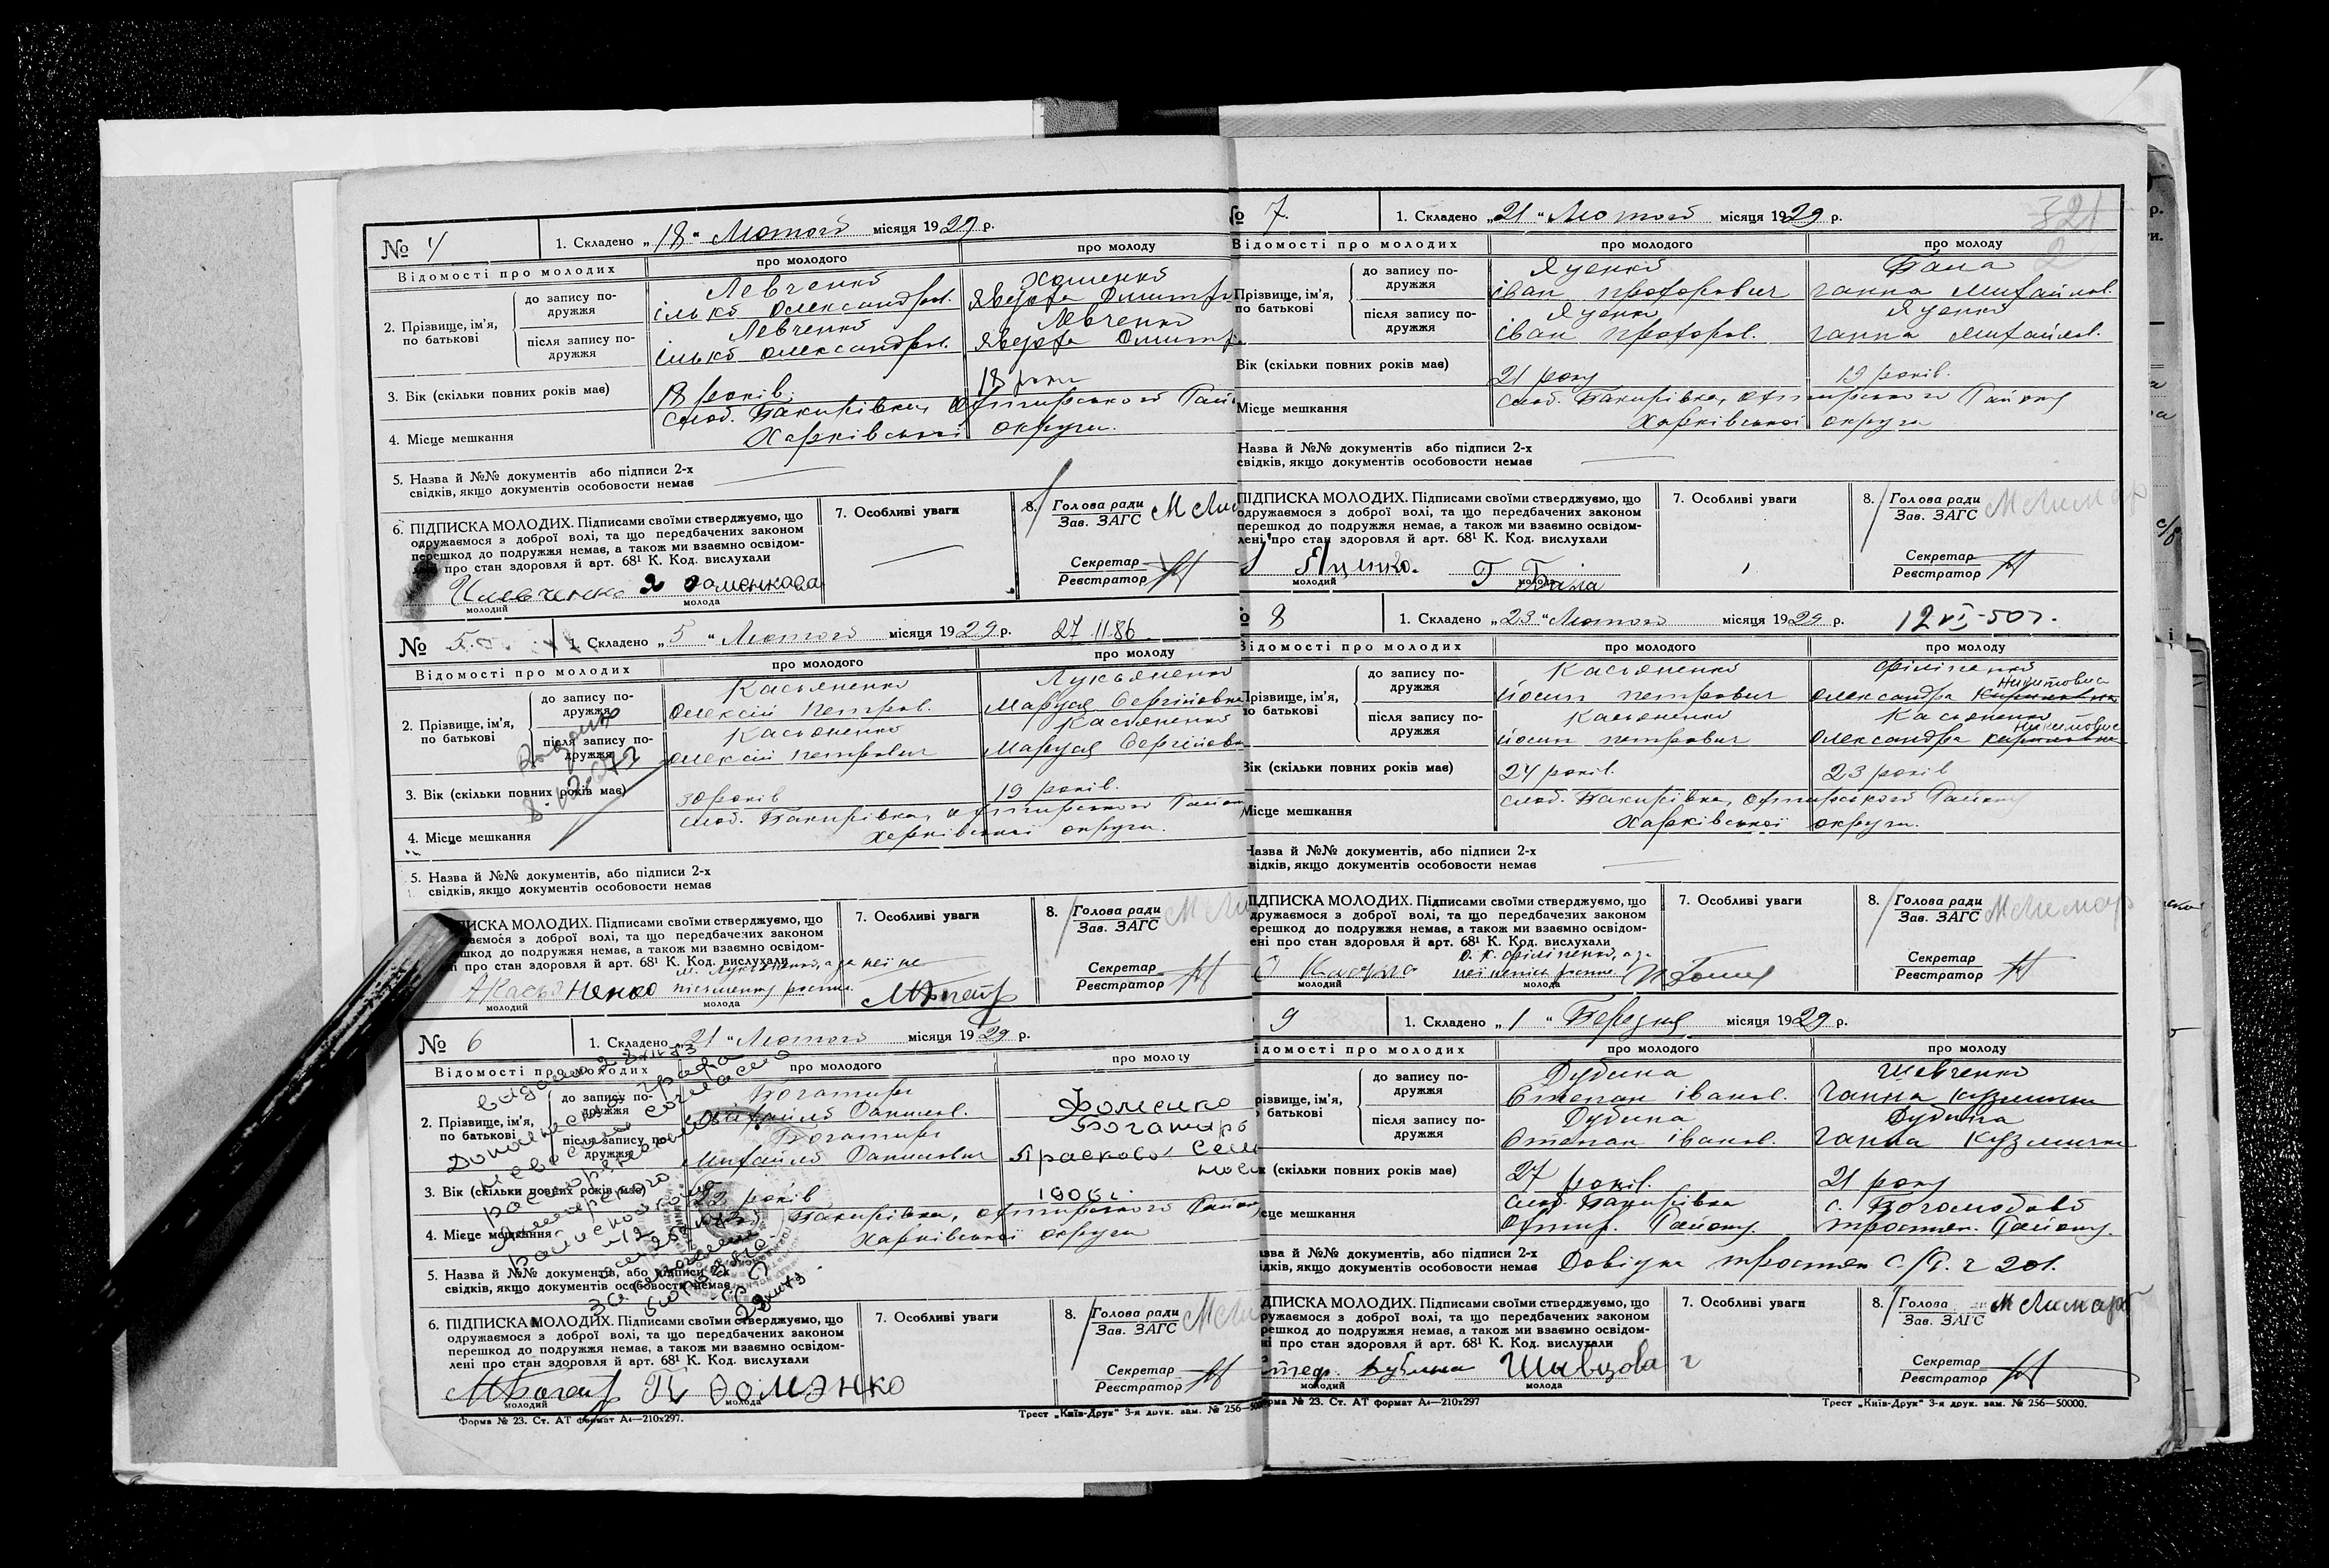 № 4
1. Складено „18“ Лютого місяця 1929 р.
Відомості про молодих
про молодого
про молоду
2. Прізвище, ім'я, по батькові
до запису по-
дружжя
Левченко
Хоменко
ілько Олександров.
Явдоха Дмитр
після запису по-
дружжя
Левченко
Левченко
ілько Олександров.
Явдоха Дмитр
3. Вік (скільки повних років має)
18 років.
18 роки
4. Місце мешкання
слоб. Бакирівка, Охтирського Рай
Харківської округи.
5. Назва й №№ документів або підписи 2-х
свідків, якщо документів особовости немає
6. ПІДПИСКА МОЛОДИХ. Підписами своїми стверджуємо, що
одружаємося з доброї волі, та що передбачених законом
перешкод до подружжя немає, а також ми взаємно освідом-
про стан здоровля й арт. 68¹ К. Код. вислухали
молодий
молода
7. Особливі уваги
8. Голова ради
Зав. ЗАГС
Секретар
Реєстратор
№ 5.
1. Складено „5“ Лютого місяця 1929 р. 27 11 86
Відомості про молодих
про молодого
про молоду
2. Прізвище, ім'я,
по батькові
до запису по-
дружжя
Касьяненко
Лукьяненко
Олексій Петров.
Маруся Сергіївна
після запису по-
дружжя
Касьяненко
Касьяненко
Олексій Петрович
Маруся Сергіївн
3. Вік (скільки повних років має)
30 років
19 років.
4. Місце мешкання
слоб. Бакирівка, Охтирського Район
Харківської округи.
5. Назва й №№ документів, або підписи 2-х
свідків, якщо документів особовости немає
ПИСКА МОЛОДИХ. Підписами своїми стверджуємо, що
аємося з доброї волі, та що передбачених законом
шкод до подружжя немає, а також ми взаємно освідом-
про стан здоровля й арт. 68¹ К. Код. вислухали
М. Лукьяненко, а за неї не
АКасьяненко письменну роспис.
молодий
молода
7. Особливі уваги
8. Голова ради
Зав. ЗАГС
Секретар
Реєстратор
№ 6
1. Складено „21“ Лютого місяця 1929 р.
Відомості про молодих
про молодого
про молоду
2. Прізвище, ім'я,
по батькові
до запису по-
дружжя
Богатирь
Фоменко
Михайло Данилов.
після запису по-
дружжя
Богатирь
Богатирь
Михайло Данилович
Прасковія Сем
3. Вік (скільки повних років має)
22 років
1906 г.
4. Місце мешкання
Бакирівка, Охтирського Район
Харківської округи
5. Назва й №№ документів, або підписи 2-х
свідків, якщо документів особовости немає
6. ПІДПИСКА МОЛОДИХ. Підписами своїми стверджуємо, що
одружаємося з доброї волі, та що передбачених законом
перешкод до подружжя немає, а також ми взаємно освідом-
лені про стан здоровля й арт. 68¹ К. Код. вислухали
МБогатир П ФОМЭНКО
молодий
молода
7. Особливі уваги
8. Голова ради
Зав. ЗАГС
Секретар
Реєстратор
Форма № 23. Ст. АТ формат А4—210х297.
Трест „Київ-Друк“ 3-я друк. зам. № 256—
321
2
№ 7.
1. Складено „21“ Лютого місяця 1929 р.
Відомості про молодих
про молодого
про молоду
Прізвище, ім'я,
по батькові
до запису по-
дружжя
Яценко
Бала
іван Прохорович
ганна Михайлов.
після запису по-
дружжя
Яценко
Яценко
іван Прохоров.
ганна Михайлов.
Вік (скільки повних років має)
21 року
19 років.
Місце мешкання
слоб. Бакирівка, Охтирського Району
Харківської округи
Назва й №№ документів або підписи 2-х
свідків, якщо документів особовости немає
ПІДПИСКА МОЛОДИХ. Підписами своїми стверджуємо, що
одружаємося з доброї волі, та що передбачених законом
перешкод до подружжя немає, а також ми взаємно освідом-
лені про стан здоровля й арт. 68¹ К. Код. вислухали
І Яценко. Г Бала
молодий
молода
7. Особливі уваги
8. Голова ради
Зав. ЗАГС
МЛимар
Секретар
Реєстратор
8
1. Складено „23“ Лютого місяця 1929 р. 12 VI-50 г.
Відомості про молодих
про молодого
про молоду
Прізвище, ім'я,
по батькові
до запису по-
дружжя
Касьяненко
Філіпенко
Никитовна
Йосип Петрович
Олександра Кириловна
після запису по-
дружжя
Касьяненко
Касьяненко
Никитовна
Йосип Петрович
Олександра Кириловна
Вік (скільки повних років має)
24 років.
23 років
Місце мешкання
слоб. Бакирівка, Охтирського Району
Харківської округи.
Назва й №№ документів, або підписи 2-х
свідків, якщо документів особовости немає
ПІДПИСКА МОЛОДИХ. Підписами своїми стверджуємо, що
одружаємося з доброї волі, та що передбачених законом
перешкод до подружжя немає, а також ми взаємно освідом-
ені про стан здоровля й арт. 68¹ К. Код. вислухали
О. К. Філіпенко, а за
молодий
молода
7. Особливі уваги
8. Голова ради
Зав. ЗАГС
МЛимар
Секретар
Реєстратор
9
1. Складено „1“ Березня місяця 1929 р.
Відомості про молодих
про молодого
про молоду
Прізвище, ім'я,
по батькові
до запису по-
дружжя
Дубина
Шевченко
Степан іванов.
ганна Кузминич
після запису по-
дружжя
Дубина
Дубина
Степан іванов.
ганна Кузминич
(скільки повних років має)
27 років.
21 року
Місце мешкання
слоб. Бакирівка
с.
Охтир. Району.
тростян. Району.
Назва й №№ документів, або підписи 2-х
свідків, якщо документів особовости немає
Довідка тростян с/р. г 201.
ПІДПИСКА МОЛОДИХ. Підписами своїми стверджуємо, що
одружаємося з доброї волі, та що передбачених законом
перешкод до подружжя немає, а також ми взаємно освідом-
ні про стан здоровля й арт. 68¹ К. Код. вислухали
Дубина
молодий
молода
7. Особливі уваги
8. Голова
Зав. ЗАГС
М Лимарь
Секретар
Реєстратор
рма № 23. Ст. АТ формат А4—210х297
Трест „Київ-Друк“ 3-я друк. зам. № 256—50000.